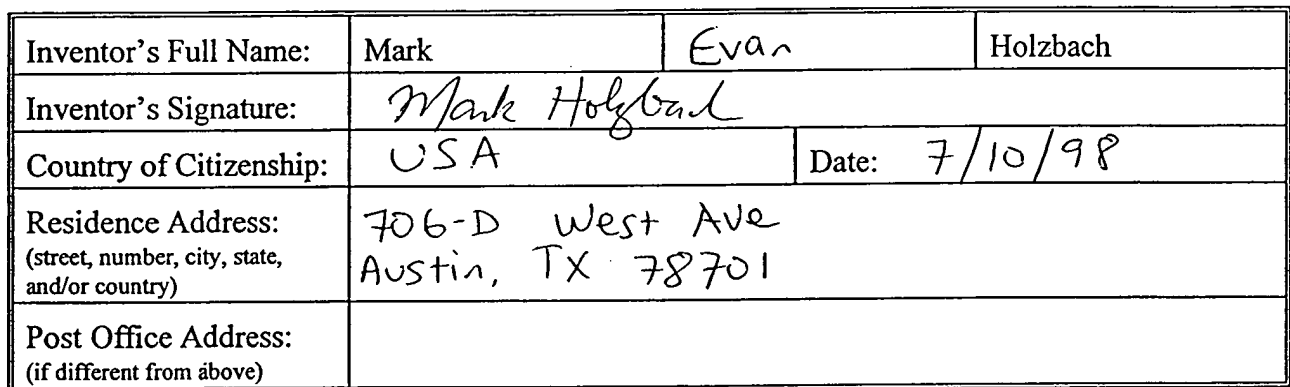 Inventor's Full Name: Mark Evan Holzbach
Inventor's Signature: Mark Holzbach
Country of Citizenship: USA Date: 7/10/98
Residence Address: 706-D West Ave
(street, number, city, state, Austin, TX 78701
and/or country)
Post Office Address:
(if different from above)